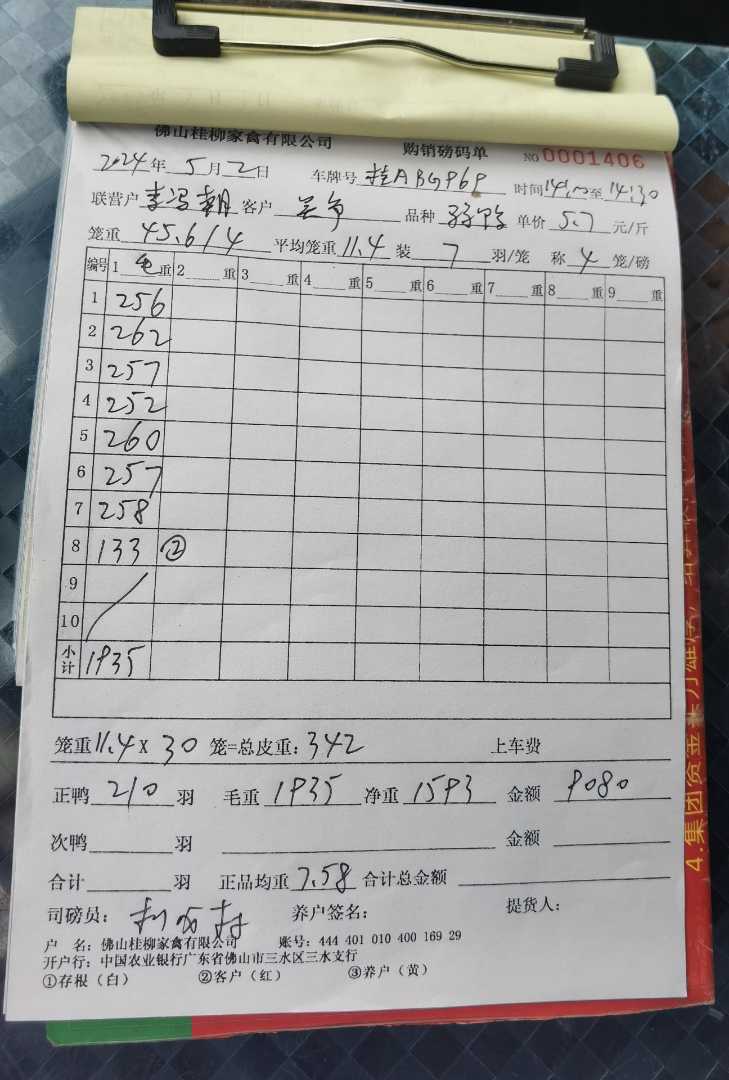 佛山桂柳家禽有限公司 购销磅码单 NO 0001406
2024年 5月2日 车牌号 桂ABG969 时间14:00至14:30
联营户 李冯朝 客户 品种 单价 5.7 元/斤
笼重 45.6/4 平均笼重 11.4 装 7 羽/笼 称 4 笼/磅
编号 1 毛 重 2 重 3 重 4 重 5 重 6 重 7 重 8 重 9 重
1 256
2 262
3 257
4 252
5 260
6 257
7 258
8 133 ②
9
10
小计 1935
笼重 11.4 x 30 笼=总皮重: 342 上车费
正鸭 210 羽 毛重 1935 净重 1593 金额 9080
次鸭 羽 金额
合计 羽 正品均重 7.58 合计总金额
司磅员: 养户签名: 提货人:
户 名: 佛山桂柳家禽有限公司 账号: 444 401 010 400 169 29
开户行: 中国农业银行广东省佛山市三水区三水支行
①存根（白） ②客户（红） ③养户（黄）
4.集团资金